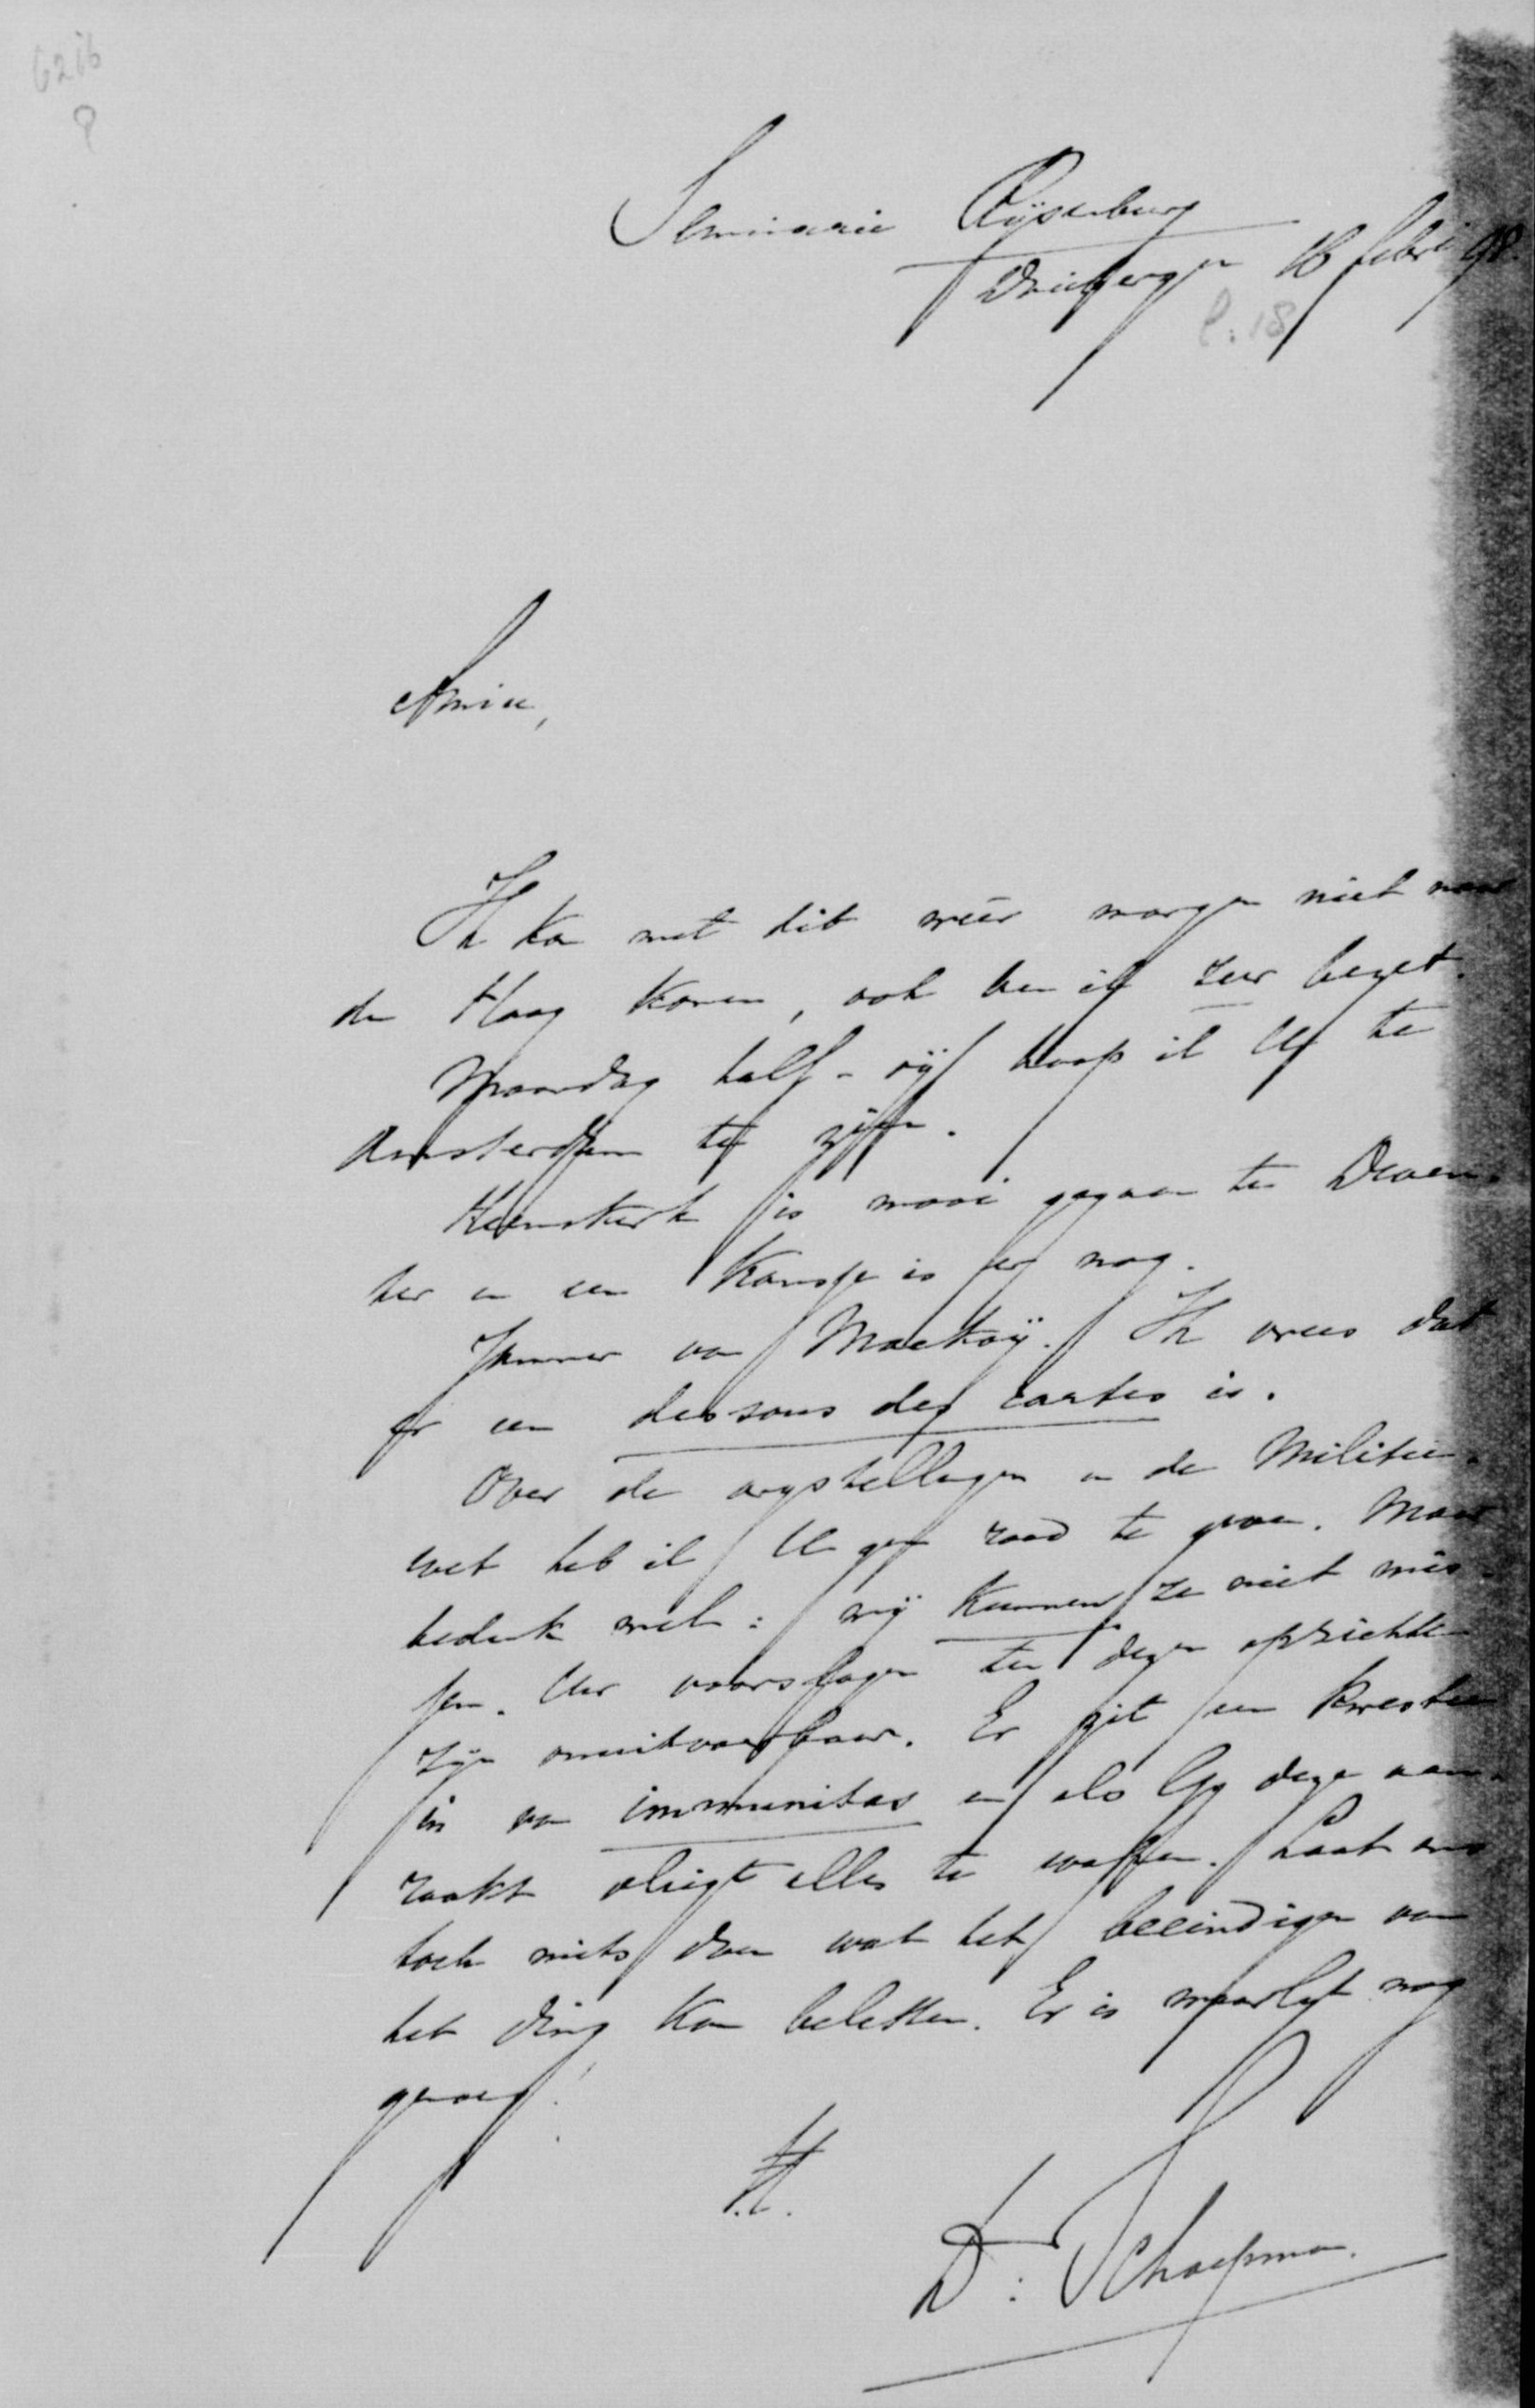 6216
8
Seminarie Rijsenburg
Driebergen 16 febr: 98.
P. 18
Amice,
Ik kan met dit weer morgen niet naar
den Haag komen, ook ben ik zeer bezet.
Maandag half-vijf hoop ik U te
Amsterdam te zijn.
Heemskerk is mooi gegaan te Deven-
ter en een kansje is er nog.
Jammer van Mackay. Ik vrees dat
er een dessous des cartes is.
Over de vrijstellingen in de Militie-
wet heb ik U geen raad te geven. Maar
bedenk wel: wij kunnen ze niet mis-
sen. Uw voorslagen ten dezen opzichte
zijn onuitvoerbaar. Er zit een kwestie
in van immunitas en als Gij deze aan-
raakt vliegt alles te wapen. Laat ons
toch niets doen wat het beeindigen van
het ding kan beletten. Er is waarlijk nog
genoeg!
tt.
Dr: Schaepman.